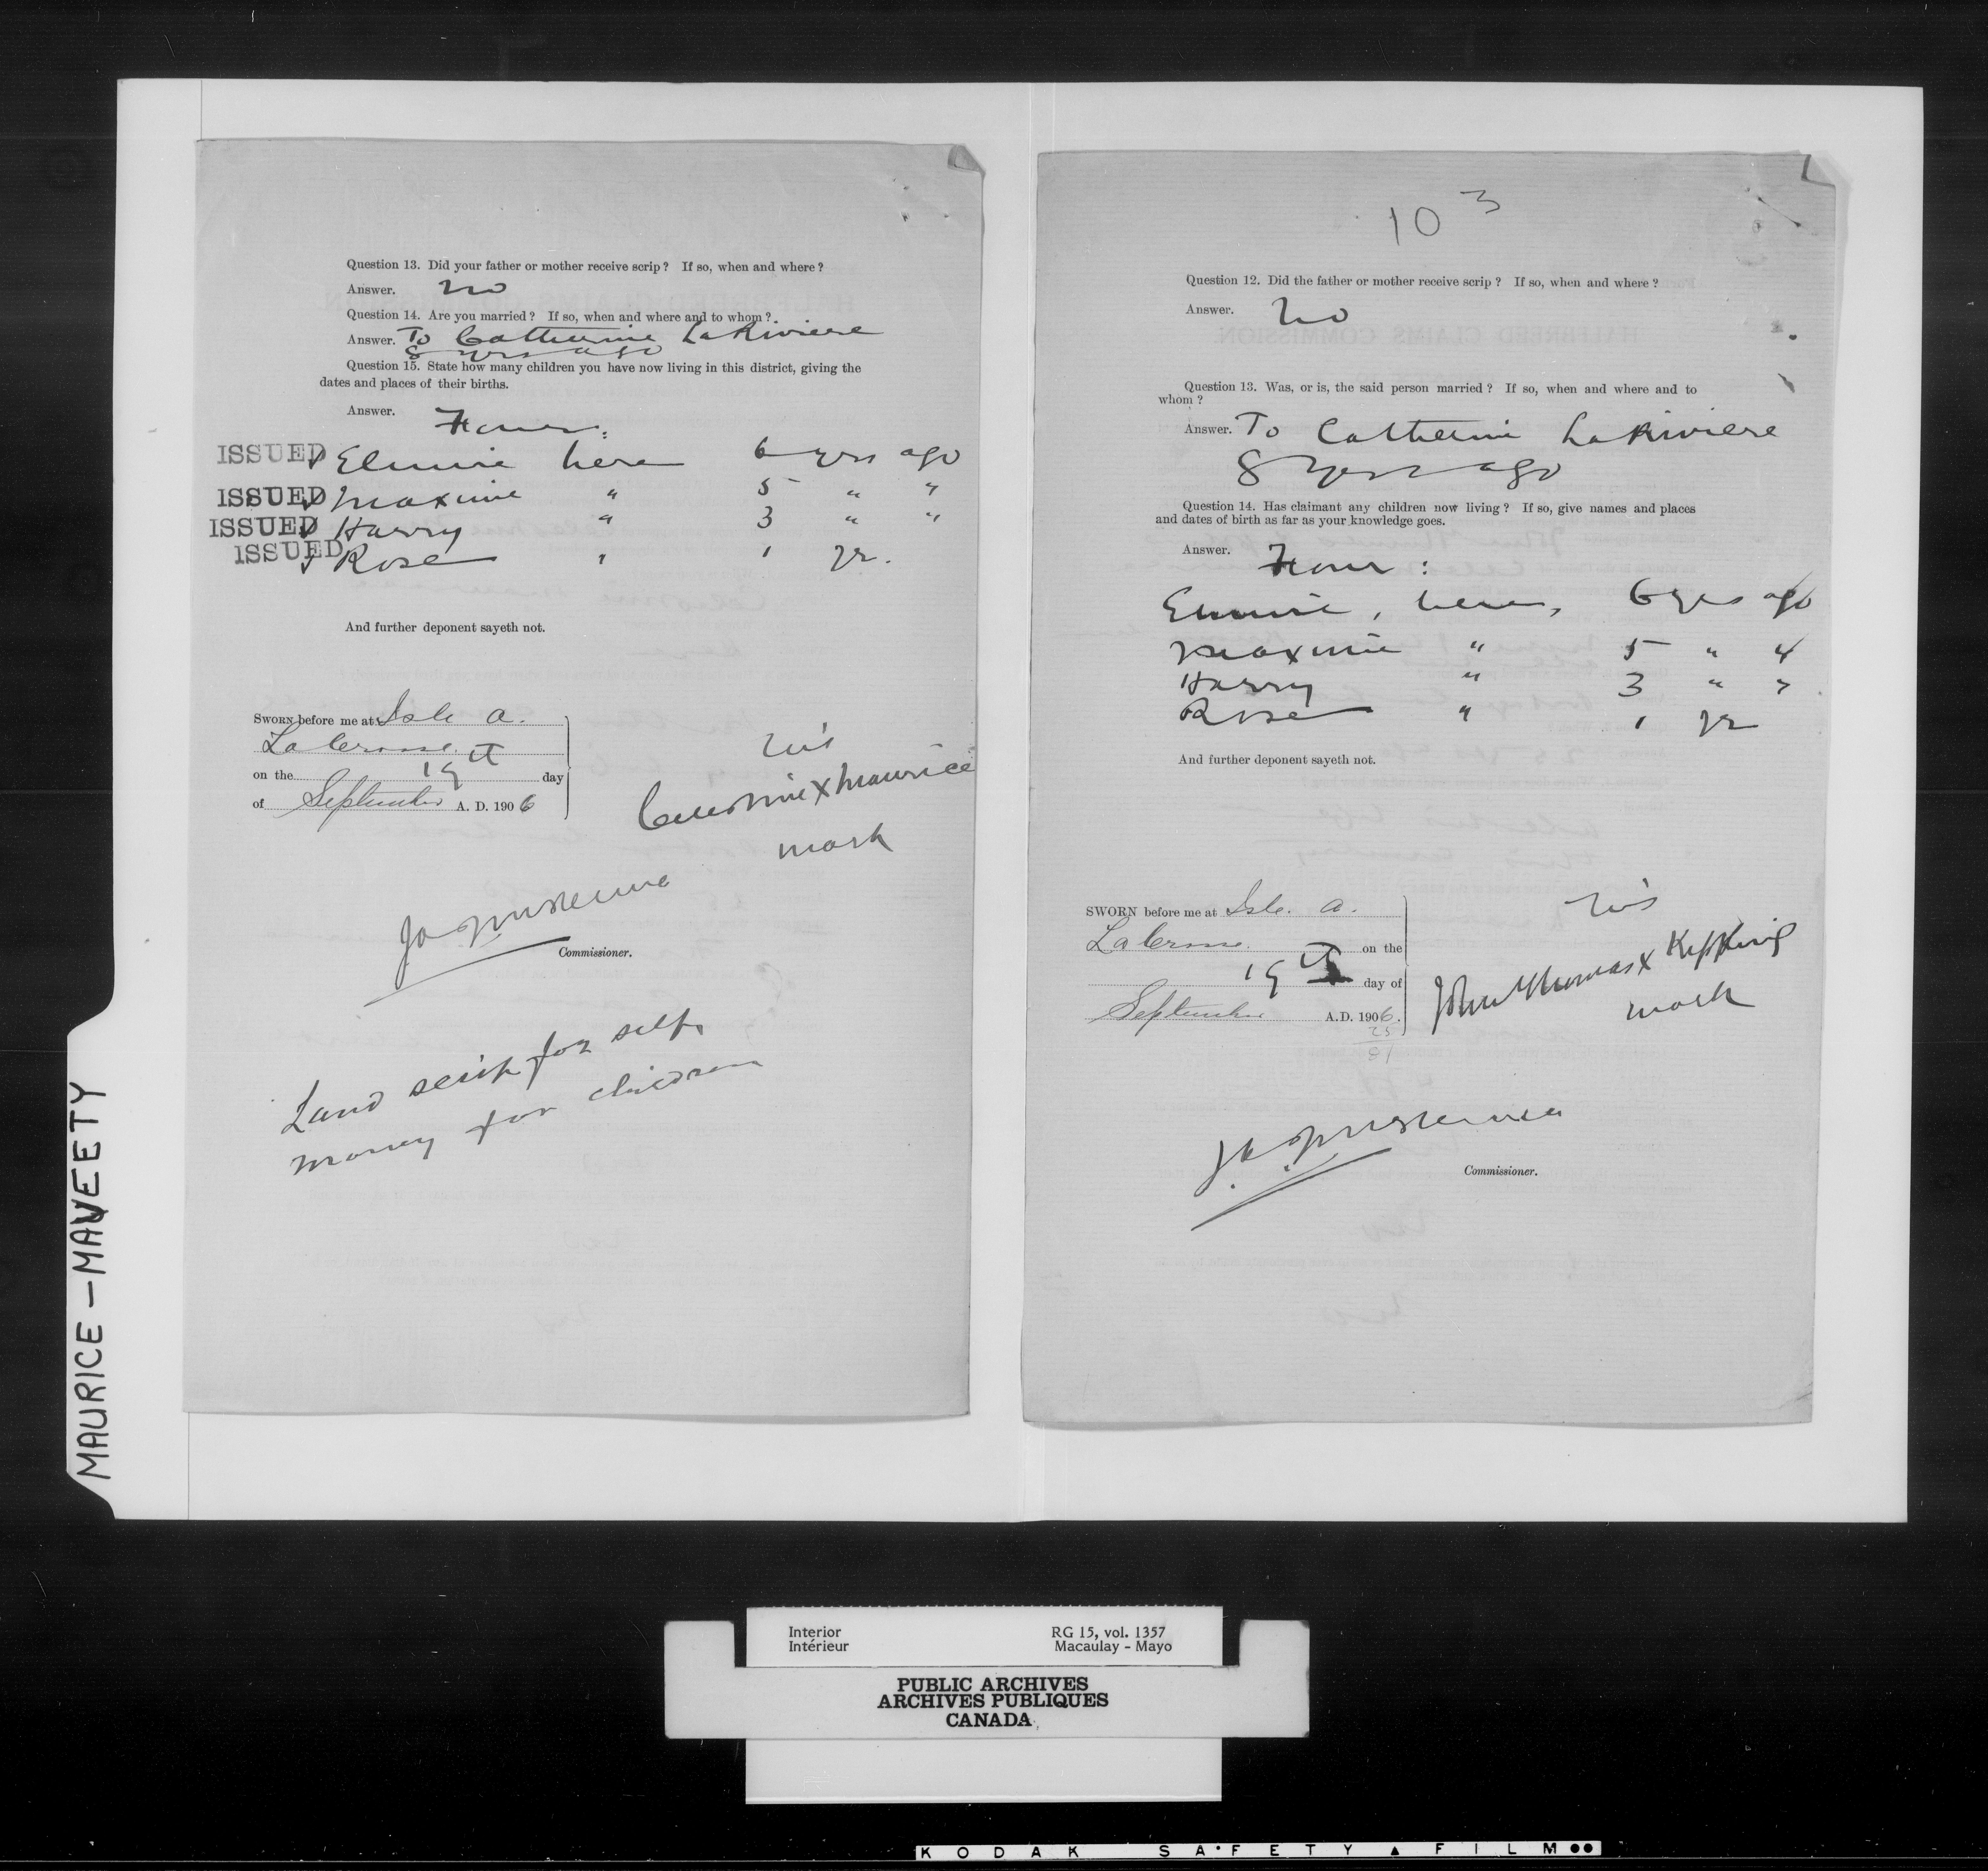 Question 13. Did your father or mother receive scrip? If so, when and where?
Answer. No
Question 14. Are you married? If so, when and where and to whom?
Answer. To Catherine LaRiviere
8 yrs ago
Question 15. State how many children you have now living in this district, giving the
dates and places of their births.
Answer. Four:
ISSUED Elmire here 6 yrs ago
ISSUED Maxime " 5 " "
ISSUED Harry " 3 " "
ISSUED Rose " 1 yr.
And further deponent sayeth not.
SWORN before me at Isle a.
LaCrosse.
on the 19th day
of September A. D. 1906
his
X Maurice
mark
Commissioner.
Land scrip for self
money for children
10 3
Question 12. Did the father or mother receive scrip? If so, when and where?
Answer. No
Question 13. Was, or is, the said person married? If so, when and where and to
whom?
Answer. To Catherine LaRiviere
8 yrs ago
Question 14. Has claimant any children now living? If so, give names and places
and dates of birth as far as your knowledge goes.
Answer. Four:
Elmire, here, 6 yrs ago
Maxime " 5 " "
Harry " 3 " "
Rose " 1 yr
And further deponent sayeth not.
SWORN before me at Isle. a.
LaCrosse. on the
19th day of
September A.D. 1906.
his
John Thomas X Kippling
mark
Commissioner.
MAURICE – MAVEETY
Interior RG 15, vol. 1357
Intérieur Macaulay - Mayo
PUBLIC ARCHIVES
ARCHIVES PUBLIQUES
CANADA
KODAK SAFETY FILM